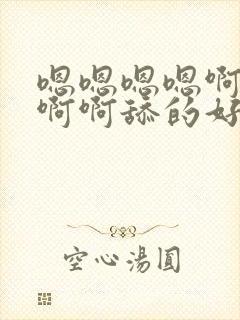 嗯嗯嗯嗯啊
啊啊舔的好
空心湯圓